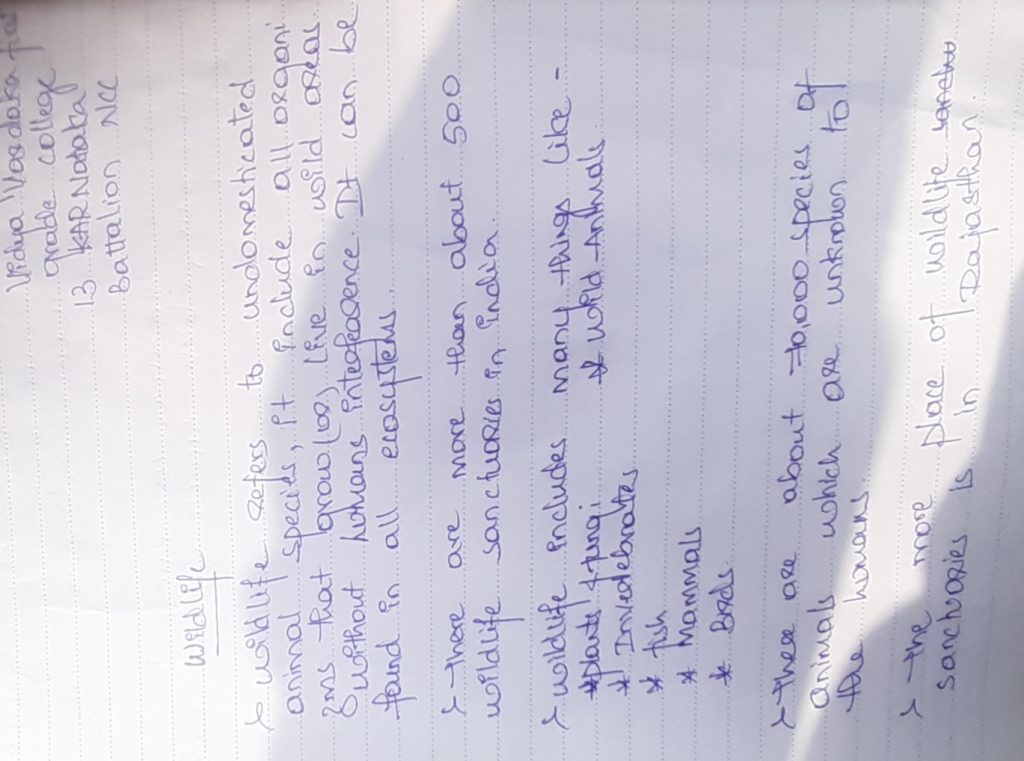 Vidya Vardaka
grade college
13 KARNataka
Battalion NCC
Wildlife
> wildlife refers to undomesticated
animal species, it include all organi
sms that grow (or) live in wild areas
& without humans inteference. It can be
found in all ecosystems.
> there are more than about 500
wildlife sanctuaries in india.
> wildlife includes many things like -
* plants & fungi
* wild animals.
* Invertebrates
* fish
* Mammals
* Birds.
> there are about 70,000 species of
animals which are unknown to
the humans.
> the more place of wildlife
sanctuaries is in Rajasthan.